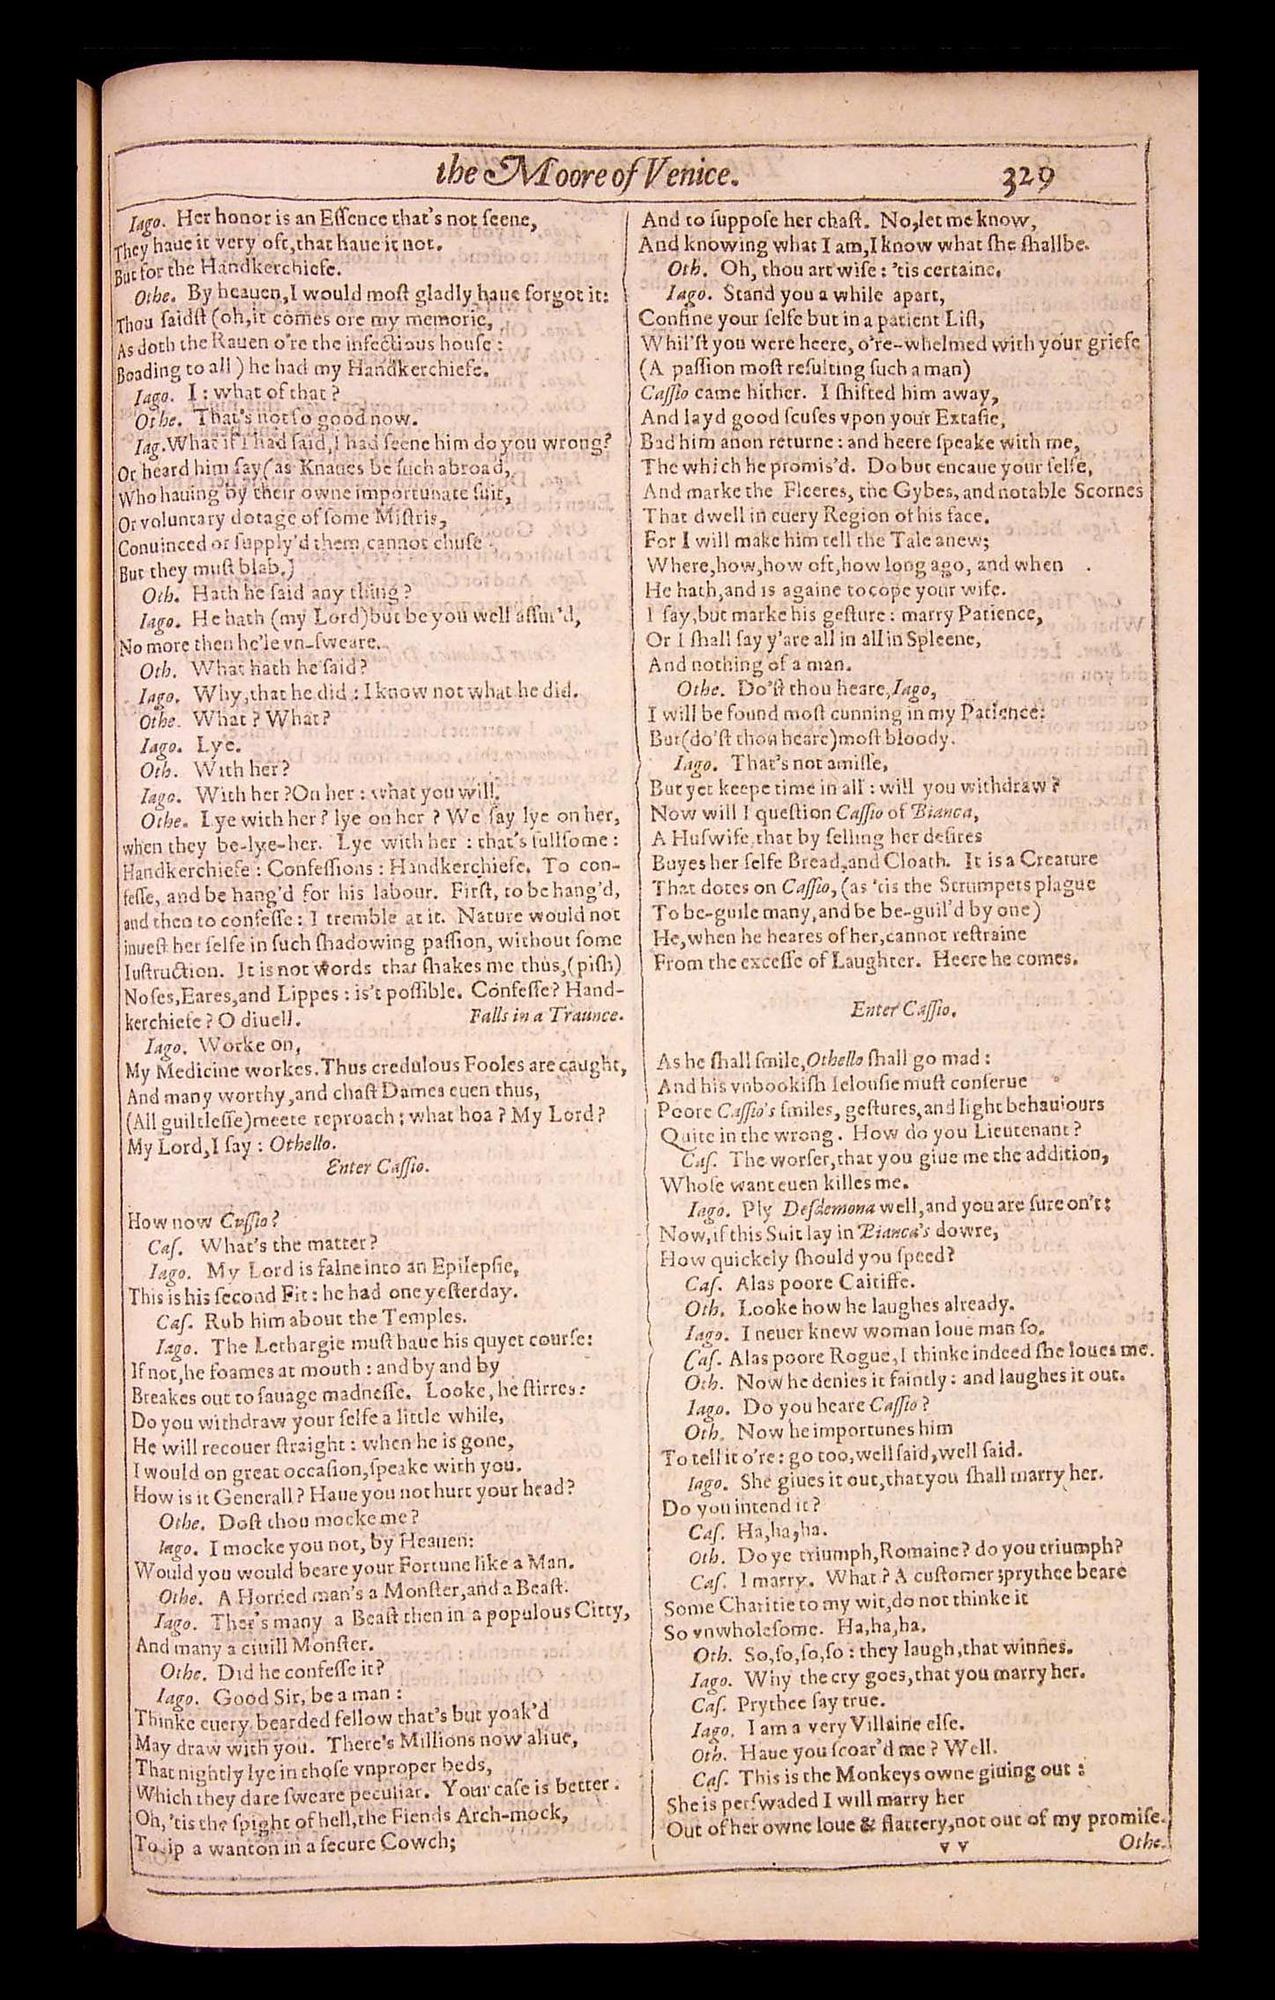 the Moore of Venice. 329
Iago. Her honor is an Eſſence that's not ſeene,
They haue it very oft, that haue it not.
But for the Handkerchiefe.
Othe. By heauen, I would moſt gladly haue forgot it:
Thou ſaidſt (oh, it comes ore my memorie,
As doth the Rauen o're the infectious houſe:
Boading to all) he had my Handkerchiefe.
Iago. I: what of that?
Othe. That's not ſo good now.
Iag. What if I had ſaid, I had ſeene him do you wrong?
Or heard him ſay (as Knaues be ſuch abroad,
Who hauing by their owne importunate ſuit,
Or voluntary dotage of ſome Miſtris,
Conuinced or ſupply'd them, cannot chuſe
But they muſt blab.)
Oth. Hath he ſaid any thing?
Iago. He hath (my Lord) but be you well aſſur'd,
No more then he'le vn-ſweare.
Oth. What hath he ſaid?
Iago. Why, that he did: I know not what he did.
Othe. What? What?
Iago. Lye.
Oth. With her?
Iago. With her? On her: what you will.
Othe. Lye with her? lye on her? We ſay lye on her,
when they be-lye-her. Lye with her: that's fullſome:
Handkerchiefe: Confeſſions: Handkerchiefe. To con-
feſſe, and be hang'd for his labour. Firſt, to be hang'd,
and then to confeſſe: I tremble at it. Nature would not
inueſt her ſelfe in ſuch ſhadowing paſſion, without ſome
Inſtruction. It is not words that ſhakes me thus, (piſh)
Noſes, Eares, and Lippes: is't poſſible. Confeſſe? Hand-
kerchiefe? O diuell. Falls in a Traunce.
Iago. Worke on,
My Medicine workes. Thus credulous Fooles are caught,
And many worthy, and chaſt Dames euen thus,
(All guiltleſſe) meete reproach: what hoa? My Lord?
My Lord, I ſay: Othello.
Enter Caſſio.
How now Caſſio?
Caſ. What's the matter?
Iago. My Lord is falne into an Epilepſie,
This is his ſecond Fit: he had one yeſterday.
Caſ. Rub him about the Temples.
Iago. The Lethargie muſt haue his quyet courſe:
If not, he foames at mouth: and by and by
Breakes out to ſauage madneſſe. Looke, he ſtirres:
Do you withdraw your ſelfe a little while,
He will recouer ſtraight: when he is gone,
I would on great occaſion, ſpeake with you.
How is it Generall? Haue you not hurt your head?
Othe. Doſt thou mocke me?
Iago. I mocke you not, by Heauen:
Would you would beare your Fortune like a Man.
Othe. A Horned man's a Monſter, and a Beaſt.
Iago. Ther's many a Beaſt then in a populous Citty,
And many a ciuill Monſter.
Othe. Did he confeſſe it?
Iago. Good Sir, be a man:
Thinke euery bearded fellow that's but yoak'd
May draw with you. There's Millions now aliue,
That nightly lye in thoſe vnproper beds,
Which they dare ſweare peculiar. Your caſe is better.
Oh, 'tis the ſpight of hell, the Fiends Arch-mock,
To lip a wanton in a ſecure Cowch;
And to ſuppoſe her chaſt. No, let me know,
And knowing what I am, I know what ſhe ſhallbe.
Oth. Oh, thou art wiſe: 'tis certaine.
Iago. Stand you a while apart,
Confine your ſelfe but in a patient Liſt,
Whil'ſt you were heere, o're-whelmed with your griefe
(A paſſion moſt reſulting ſuch a man)
Caſſio came hither. I ſhifted him away,
And layd good ſcuſes vpon your Extaſie,
Bad him anon returne: and heere ſpeake with me,
The which he promis'd. Do but encaue your ſelfe,
And marke the Fleeres, the Gybes, and notable Scornes
That dwell in euery Region of his face.
For I will make him tell the Tale anew;
Where, how, how oft, how long ago, and when
He hath, and is againe to cope your wife.
I ſay, but marke his geſture: marry Patience,
Or I ſhall ſay y'are all in all in Spleene,
And nothing of a man.
Othe. Do'ſt thou heare, Iago,
I will be found moſt cunning in my Patience:
But (do'ſt thou heare) moſt bloody.
Iago. That's not amiſſe,
But yet keepe time in all: will you withdraw?
Now will I queſtion Caſſio of Bianca,
A Huſwife that by ſelling her deſires
Buyes her ſelfe Bread, and Cloath. It is a Creature
That dotes on Caſſio, (as 'tis the Strumpets plague
To be-guile many, and be be-guil'd by one)
He, when he heares of her, cannot reſtraine
From the exceſſe of Laughter. Heere he comes.
Enter Caſſio.
As he ſhall ſmile, Othello ſhall go mad:
And his vnbookiſh Ielouſie muſt conſerue
Poore Caſſio's ſmiles, geſtures, and light behauiours
Quite in the wrong. How do you Lieutenant?
Caſ. The worſer, that you giue me the addition,
Whoſe want euen killes me.
Iago. Ply Deſdemona well, and you are ſure on't:
Now, if this Suit lay in Bianca's dowre,
How quickely ſhould you ſpeed?
Caſ. Alas poore Caitiffe.
Oth. Looke how he laughes already.
Iago. I neuer knew woman loue man ſo.
Caſ. Alas poore Rogue, I thinke indeed ſhe loues me.
Oth. Now he denies it faintly: and laughes it out.
Iago. Do you heare Caſſio?
Oth. Now he importunes him
To tell it o're: go too, well ſaid, well ſaid.
Iago. She giues it out, that you ſhall marry her.
Do you intend it?
Caſ. Ha, ha, ha.
Oth. Do ye triumph, Romaine? do you triumph?
Caſ. I marry. What? A cuſtomer; prythee beare
Some Charitie to my wit, do not thinke it
So vnwholeſome. Ha, ha, ha.
Oth. So, ſo, ſo, ſo: they laugh, that winnes.
Iago. Why the cry goes, that you marry her.
Caſ. Prythee ſay true.
Iago. I am a very Villaine elſe.
Oth. Haue you ſcoar'd me? Well.
Caſ. This is the Monkeys owne giuing out:
She is perſwaded I will marry her
Out of her owne loue & flattery, not out of my promiſe.
v v Othe.